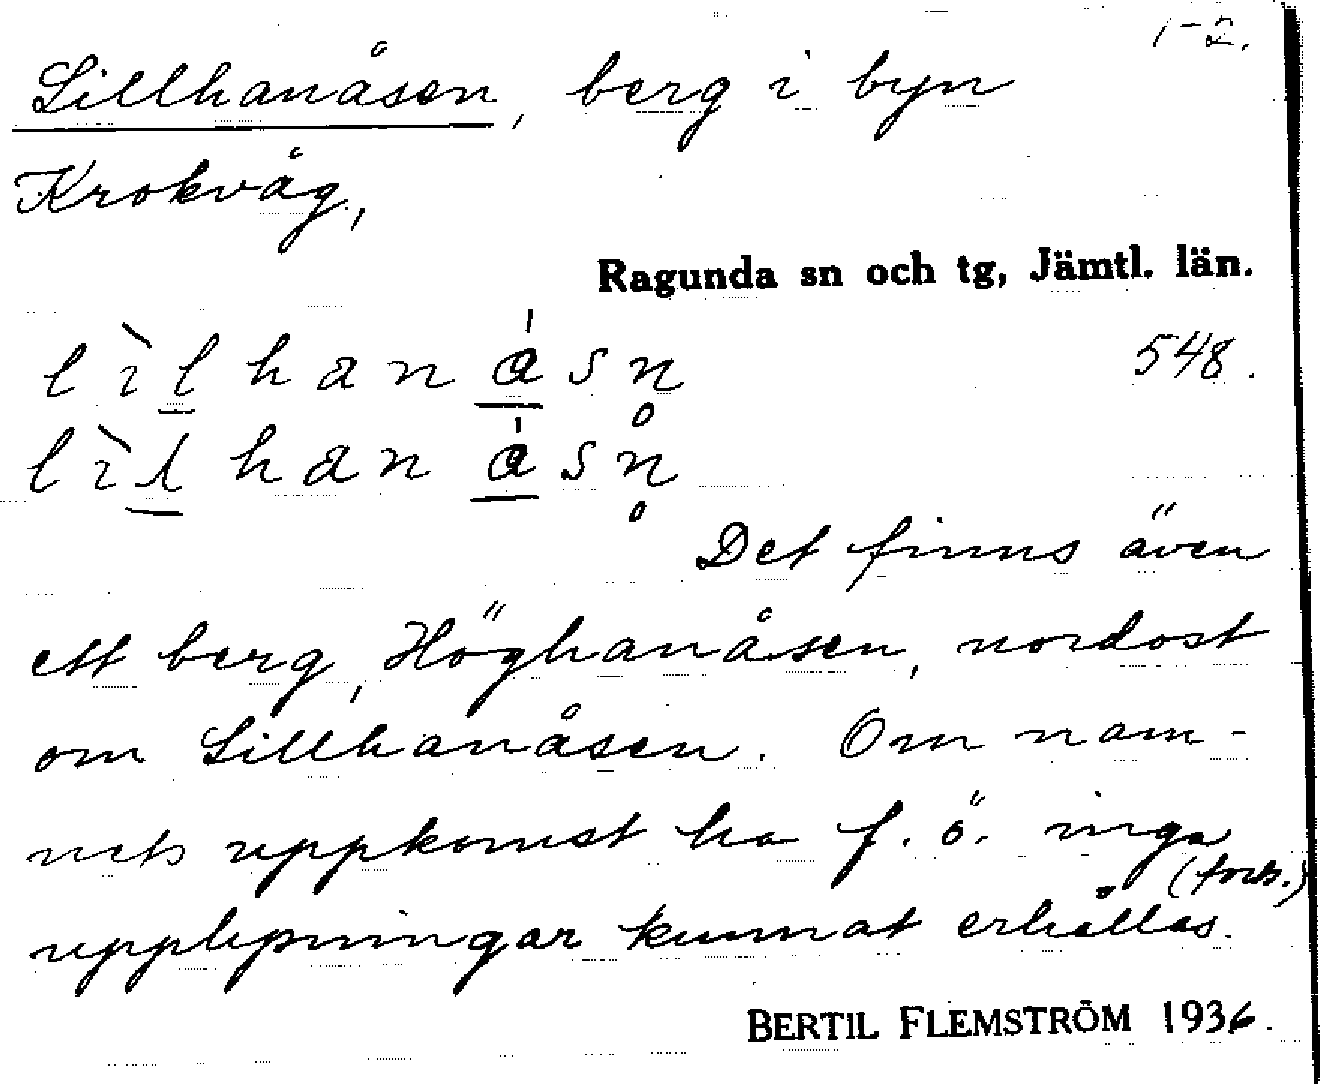 1-2.
Lillhanåsen, berg i byn
Krokvåg,
Ragunda sn och tg, Jämtl. län.
lìlhanåsn̥ 548.
lìlhanåsn̥
Det finns även
ett berg, Höghanåsen, nordost
om Lillhanåsen. Om nam-
nets uppkomst ha f. ö. inga
(forts.)
upplysningar kunnat erhållas.
BERTIL FLEMSTRÖM 1936.